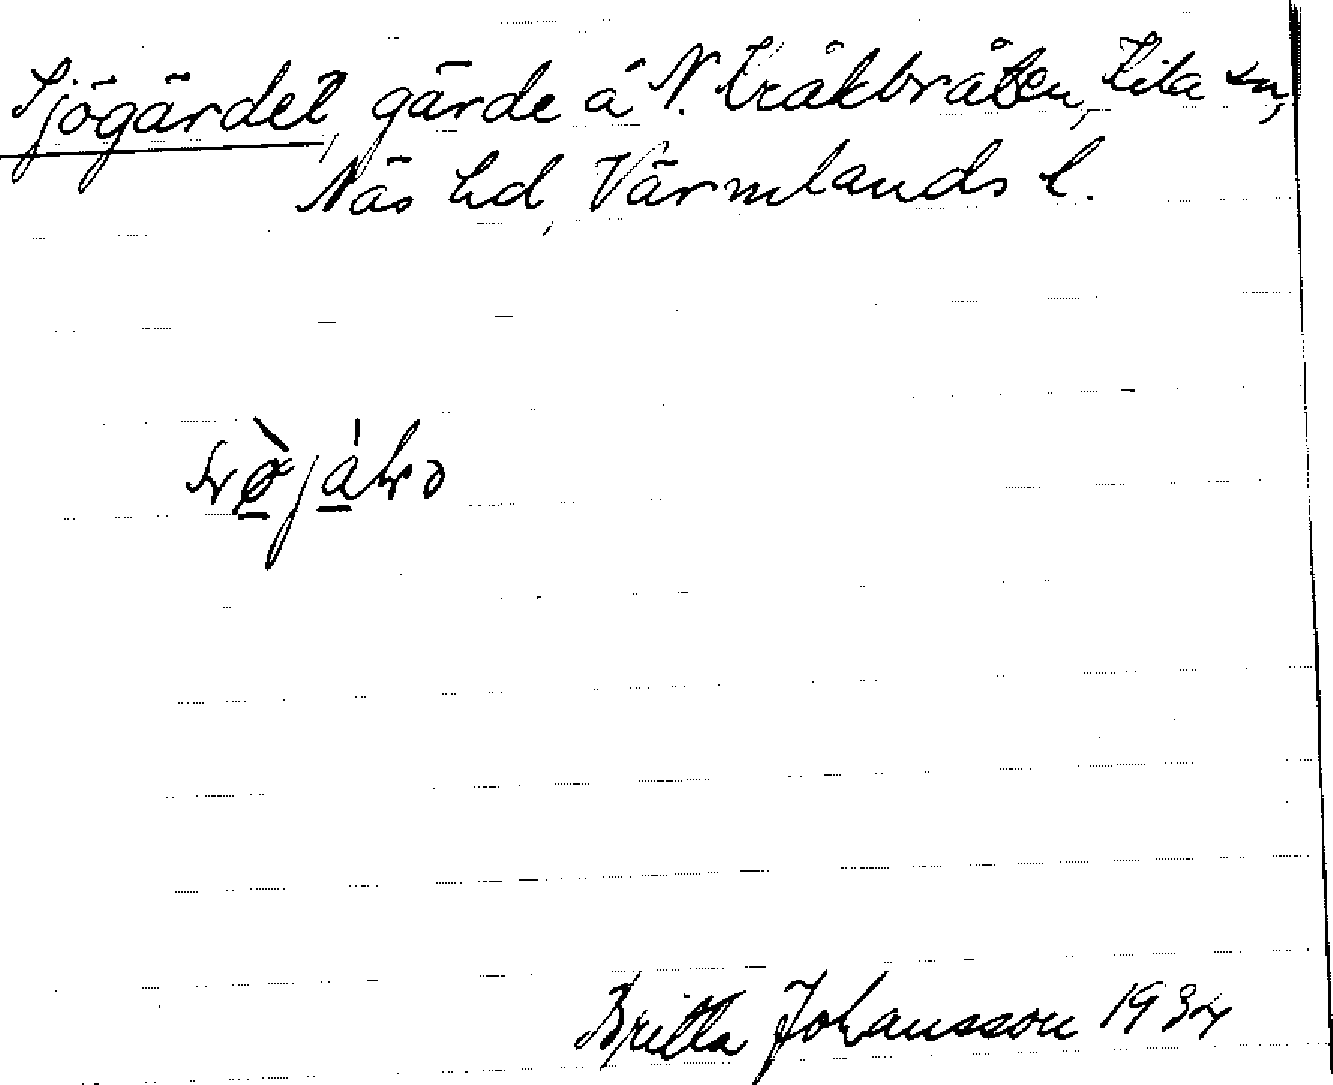 Sjögärdet, gärde å N. Kråkbråten, Kila sn,
Näs hd, Värmlands l.
Britta Johansson 1934